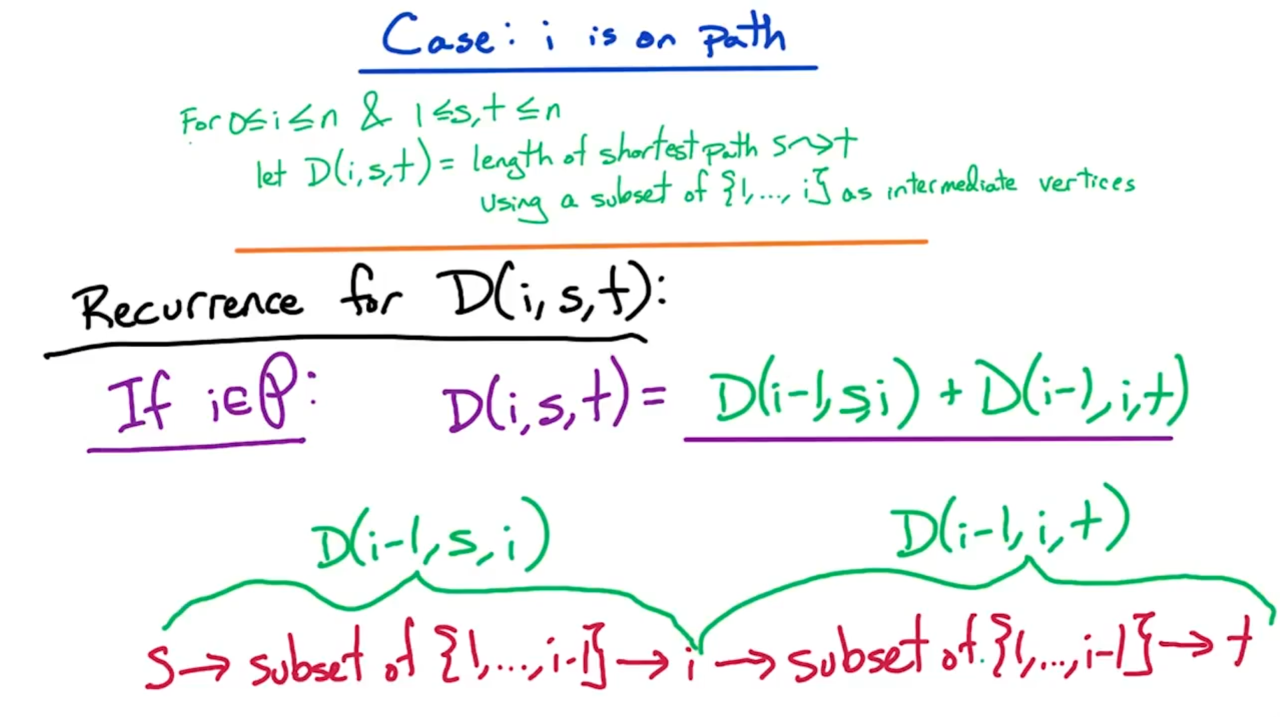 Case: i is on path
For 0≤i≤n & 1≤s,t≤n
let D(i,s,t) = length of shortest path s⤳t
using a subset of {1,...,i} as intermediate vertices
Recurrence for D(i,s,t):
If i∈P: D(i,s,t) = D(i-1,s,i) + D(i-1,i,t)
D(i-1,s,i) D(i-1,i,t)
S→ subset of {1,...,i-1} → i → subset of {1,...,i-1} → t